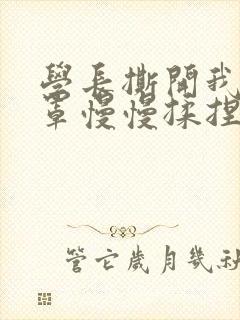 學長撕開我
罩慢慢揉捏
管它歲月幾